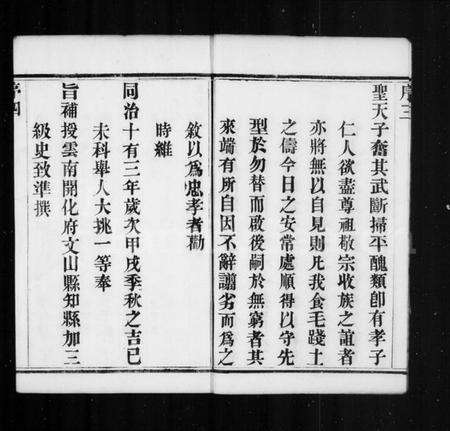 序三
聖天子奮其武斷掃平醜類卽有孝子
仁人欲盡尊祖敬宗收族之誼者
亦將無以自見則凡我食毛踐土
之儔今日之安常處順得以守先
型於勿替而啟後嗣於無窮者其
來端有所自因不辭譾劣而爲之
敘以爲忠孝者勸
時維
同治十有三年歲次甲戌季秋之吉己
未科舉人大挑一等奉
旨補授雲南開化府文山縣知縣加三
級史致準撰
序四